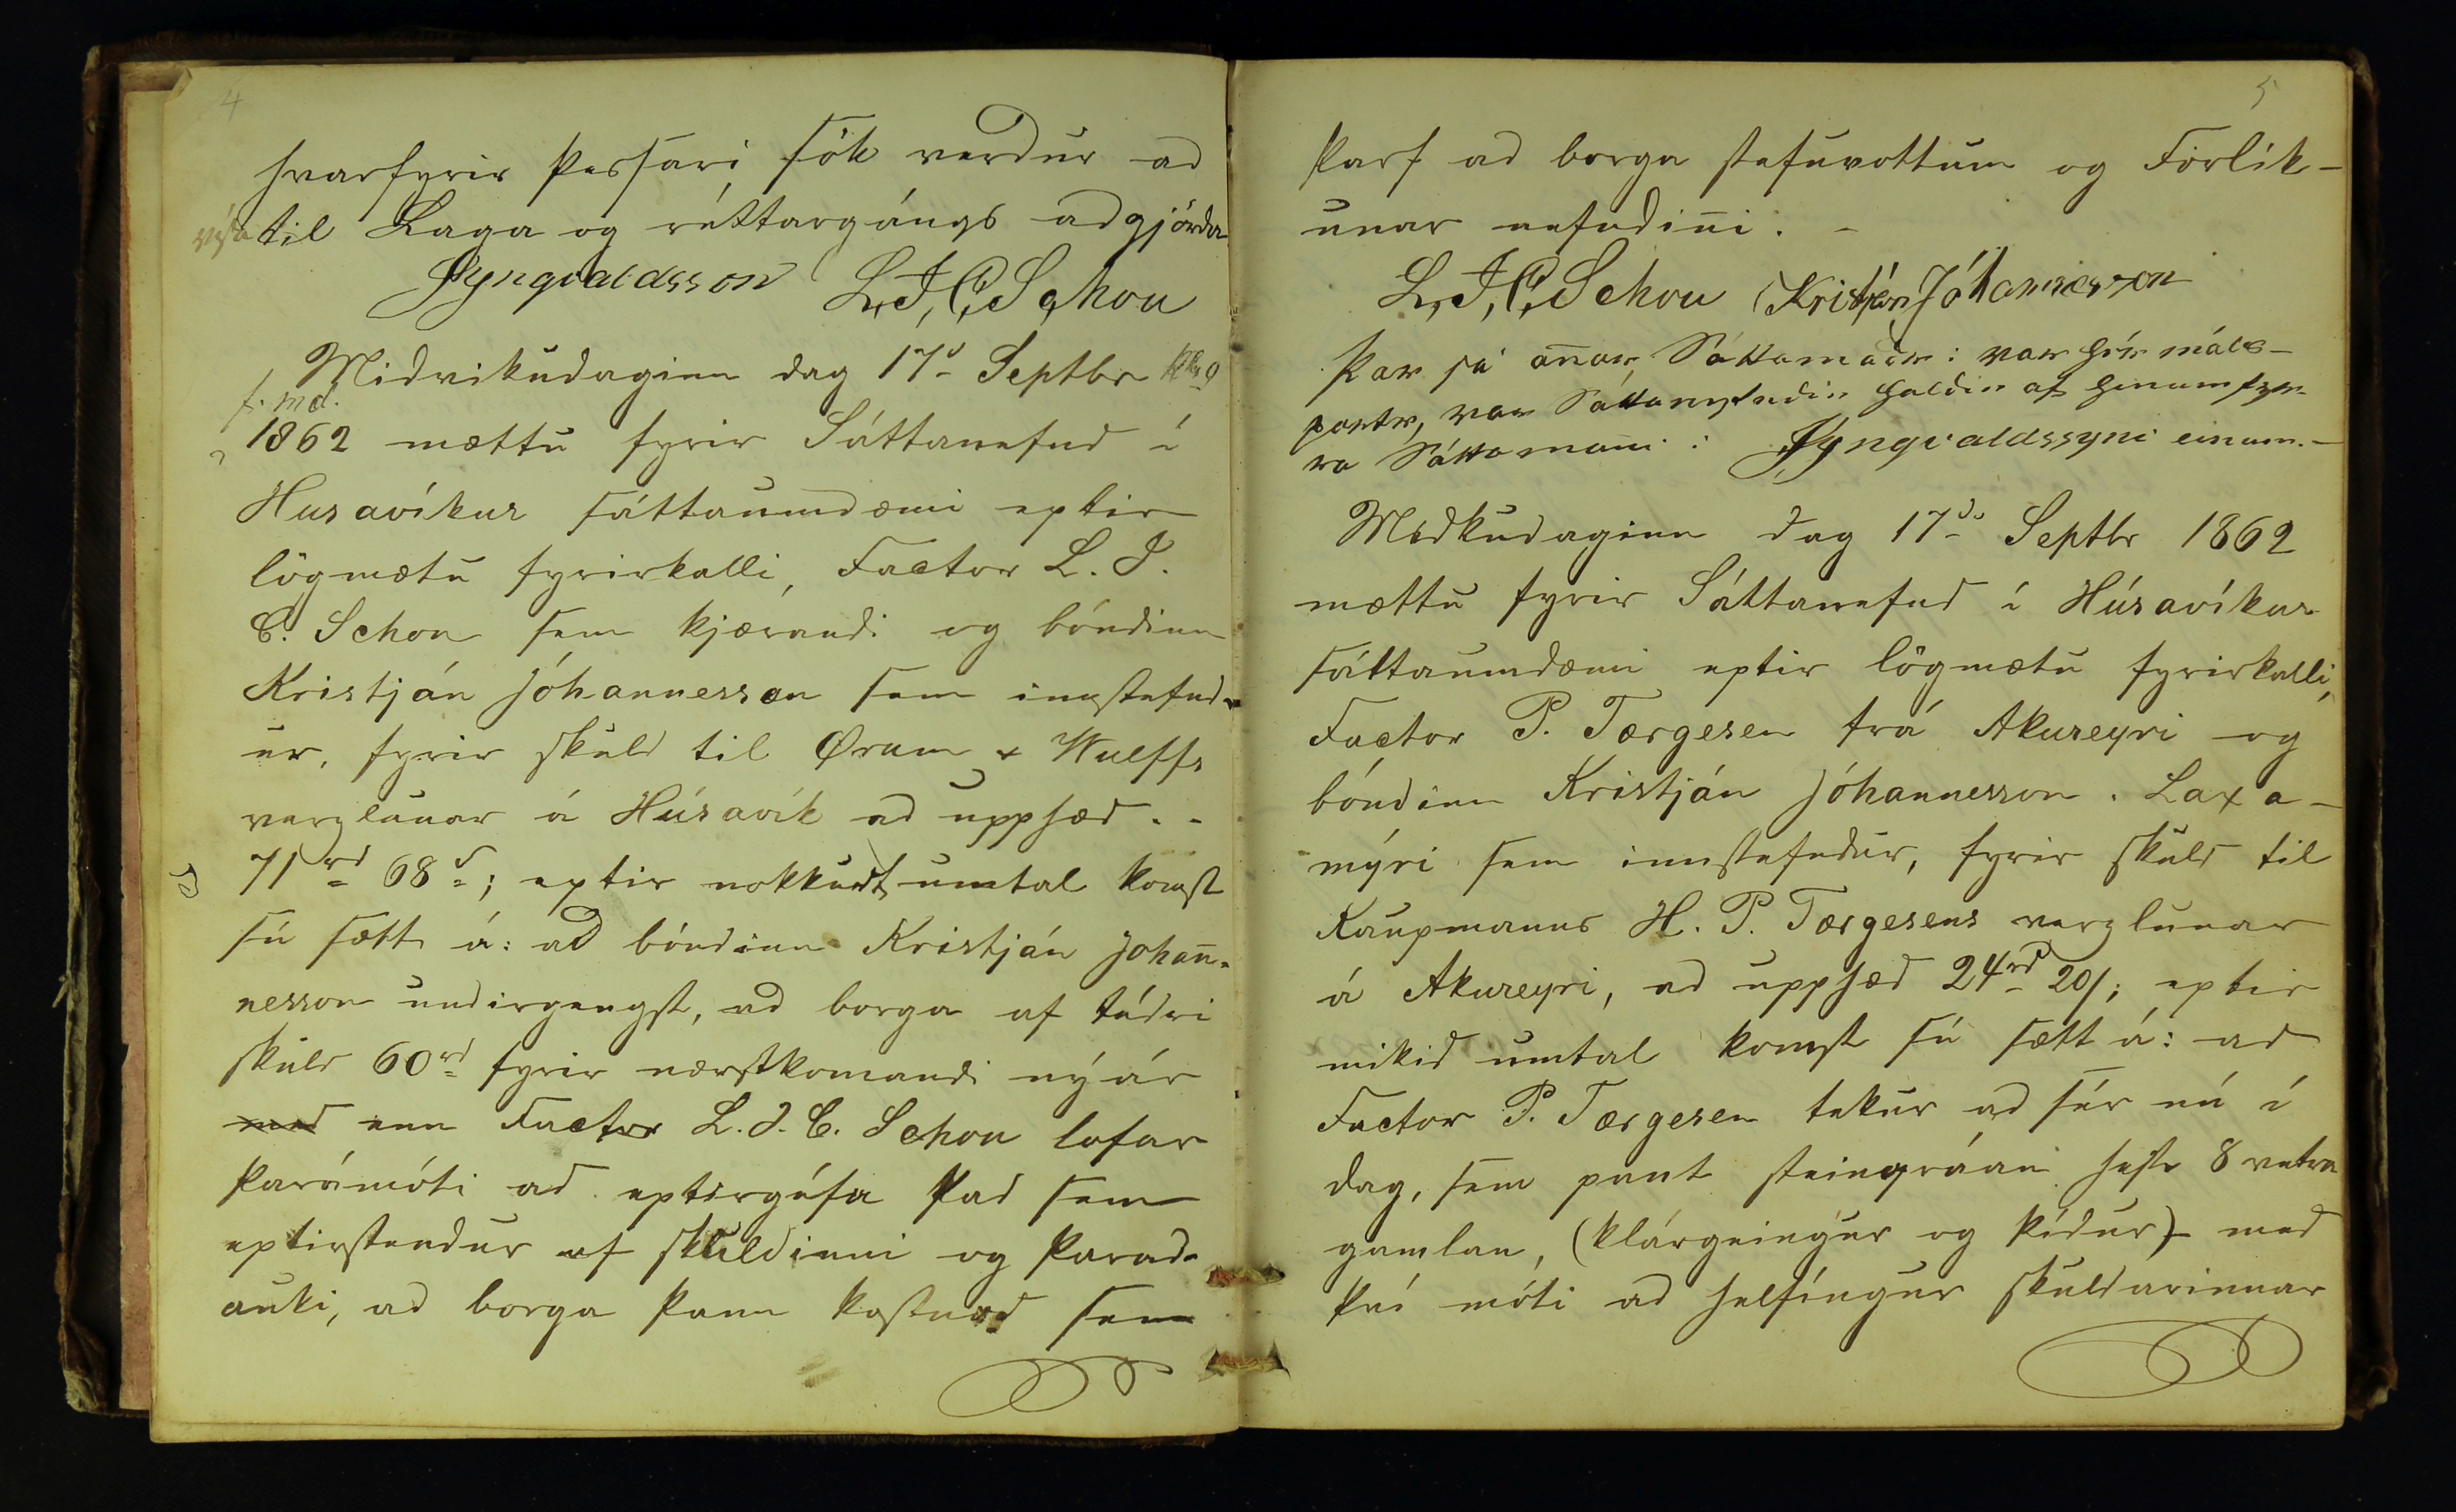 4
hvarfyrir þessari sök verdur ad
vísa til Laga og réttargángs adgjörda
SYngvaldsson L. J. C. Schou
Midvikudaginn dag 17d Septbr Kl. 9
f. md.
1862 mættu fyrir Sáttanefnd í
Husavíkur sáttaumdæmi eptir
lögmætu fyrirkalli, Factor L. J.
C. Schou sem kjærandi og bóndinn
Kristján Jóhannesson sem innstefnd-
ur, fyrir skuld til Ørum & Wulffs
verzlunar á Húsavík ad upphæd . -
71rd 68s; eptir nokkurt umtal komst
sú sætt á: ad bóndinn Kristján Johan̄-
nesson undirgengst, ad borga af tédri
skuld 60rd fyrir nærstkomandi nýár
med enn Factor L. J. C. Schou lofar
þarámóti ad eptirgéfa þad sem
eptirstendur af skuldinni og þarad-
auki, ad borga þann kostnad sem
5
þarf ad borga stefnuvottum og Forlík-
unar nefndin̄i. -
L. J. C. Schou Kristján Jóhannesson
Þar sá an̄ar Sáttamaðr: var hér máls-
partr, var Sáttanefndin haldin af hinum fyr-
ra Sáttaman̄i: SYngvaldssyni einum. -
Midkudaginn dag 17da Septbr 1862
mættu fyrir Sáttanefnd í Húsavíkur
sáttaumdæmi eptir lögmætu fyrirkalli,
Factor P. Tærgesen frá Akureyri og
bóndinn Kristján Jóhannesson . Laxa-
mýri sem innstefndur, fyrir skuld til
Kaupmanns H. P. Tærgesens verzlunar
á Akureyri, ad upphæd 24rd 20s; eptir
mikid umtal komst sú sætt á: ad
Factor P. Tærgesen tekur ad sér nú í
dag, sem pant steingráan hest 8 vetra
gamlan, (klárgeingur og þídur) med
því móti ad helfíngur skuldarinnar